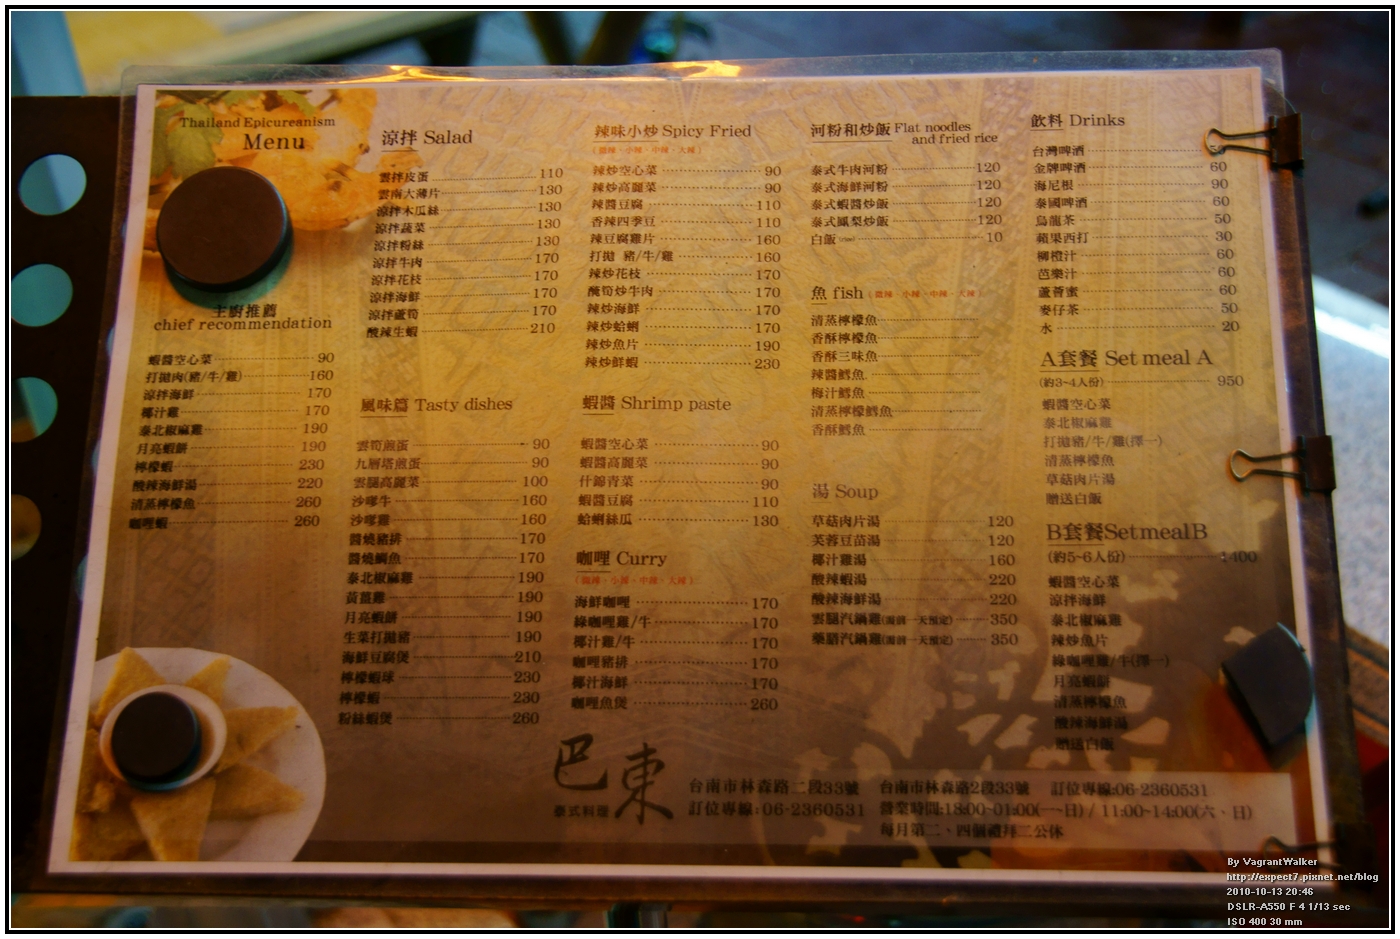 Thailand Epicureanism
Menu
主廚推薦
chief recommendation
蝦醬空心菜 90
打拋肉(豬/牛/雞) 160
涼拌海鮮 170
椰汁雞 170
泰北椒麻雞 190
月亮蝦餅 190
檸檬蝦 230
酸辣海鮮湯 220
清蒸檸檬魚 260
咖哩蝦 260
涼拌 Salad
雲拌皮蛋 110
雲南大薄片 130
涼拌木瓜絲 130
涼拌蔬菜 130
涼拌粉絲 130
涼拌牛肉 170
涼拌花枝 170
涼拌海鮮 170
涼拌蘆筍 170
酸辣生蝦 210
風味篇 Tasty dishes
雲筍煎蛋 90
九層塔煎蛋 90
雲腿高麗菜 100
沙嗲牛 160
沙嗲雞 160
醬燒豬排 170
醬燒鯛魚 170
泰北椒麻雞 190
黃薑雞 190
月亮蝦餅 190
生菜打拋豬 190
海鮮豆腐煲 210
檸檬蝦球 230
檸檬蝦 230
粉絲蝦煲 260
辣味小炒 Spicy Fried
(微辣、小辣、中辣、大辣)
辣炒空心菜 90
辣炒高麗菜 90
辣醬豆腐 110
香辣四季豆 110
辣豆腐雞片 160
打拋 豬/牛/雞 160
辣炒花枝 170
醃筍炒牛肉 170
辣炒海鮮 170
辣炒蛤蜊 170
辣炒魚片 190
辣炒鮮蝦 230
蝦醬 Shrimp paste
蝦醬空心菜 90
蝦醬高麗菜 90
什錦青菜 90
蝦醬豆腐 110
蛤蜊絲瓜 130
咖哩 Curry
(微辣、小辣、中辣、大辣)
海鮮咖哩 170
綠咖哩雞/牛 170
椰汁雞/牛 170
咖哩豬排 170
椰汁海鮮 170
咖哩魚煲 260
河粉和炒飯 Flat noodles
and fried rice
泰式牛肉河粉 120
泰式海鮮河粉 120
泰式蝦醬炒飯 120
泰式鳳梨炒飯 120
白飯 10
魚 fish (微辣、小辣、中辣、大辣)
清蒸檸檬魚
香酥檸檬魚
香酥三味魚
辣醬鱈魚
梅汁鱈魚
清蒸檸檬鱈魚
香酥鱈魚
湯 Soup
草菇肉片湯 120
芙蓉豆苗湯 120
椰汁雞湯 160
酸辣蝦湯 220
酸辣海鮮湯 220
雲腿汽鍋雞(需前一天預定) 350
藥膳汽鍋雞(需前一天預定) 350
飲料 Drinks
台灣啤酒 50
金牌啤酒 60
海尼根 90
泰國啤酒 60
烏龍茶 50
蘋果西打 30
柳橙汁 60
芭樂汁 60
蘆薈蜜 60
麥仔茶 50
水 20
A套餐 Set meal A
(約3~4人份) 950
蝦醬空心菜
泰北椒麻雞
打拋豬/牛/雞(擇一)
清蒸檸檬魚
草菇肉片湯
贈送白飯
B套餐 Set meal B
(約5~6人份) 1400
蝦醬空心菜
涼拌海鮮
泰北椒麻雞
辣炒魚片
綠咖哩雞/牛(擇一)
月亮蝦餅
清蒸檸檬魚
酸辣海鮮湯
贈送白飯
巴東
泰式料理
台南市林森路二段33號
訂位專線:06-2360531
台南市林森路2段33號 訂位專線:06-2360531
營業時間:18:00~01:00(一~日) / 11:00~14:00(六、日)
每月第二、四個禮拜二公休
By VagrantWalker
http://expect7.pixnet.net/blog
2010-10-13 20:46
DSLR-A550 F 4 1/13 sec
ISO 400 30 mm